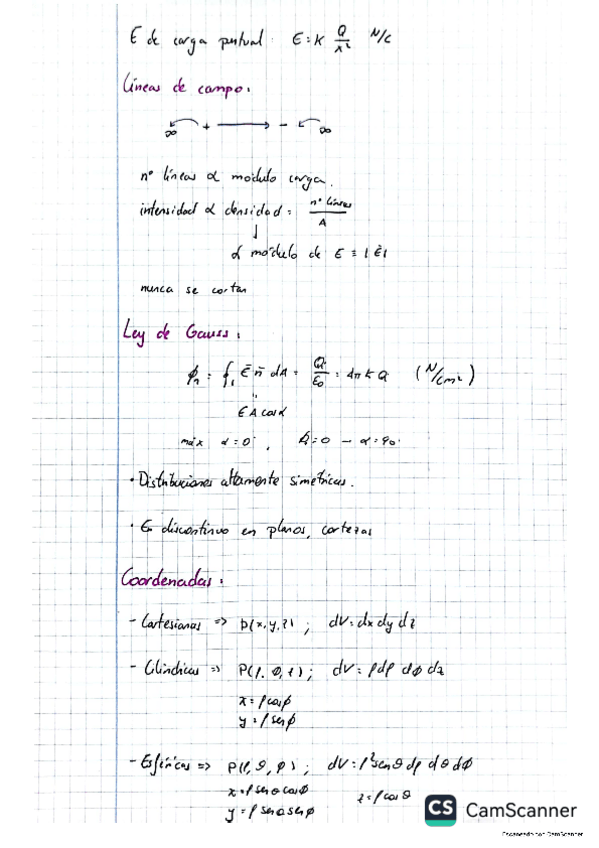 E de carga puntual. E = K Q/x² N/C
Líneas de campo:
∞ + → - ∞
nº líneas α módulo carga.
intensidad α densidad = nº líneas / A
↓
α módulo de E ≡ |E|
nunca se cortan
Ley de Gauss:
ϕn = ∮s Ē n̄ dA = Q/ε0 = 4π k Q (N/cm²)
E A cos α
máx α = 0°, ϕ = 0 - α = 90°
• Distribuciones altamente simétricas.
• E discontinuo en planos, cortezas
Coordenadas:
- Cartesianas => P(x, y, z); dV = dx dy dz
- Cilíndricas => P(ρ, ϕ, z); dV = ρ dρ dϕ dz
x = ρ cos ϕ
y = ρ sen ϕ
- Esféricas => P(ρ, θ, ϕ); dV = ρ² sen θ dρ dθ dϕ
x = ρ sen θ cos ϕ z = ρ cos θ
y = ρ sen θ sen ϕ
CS CamScanner
Escaneado con CamScanner